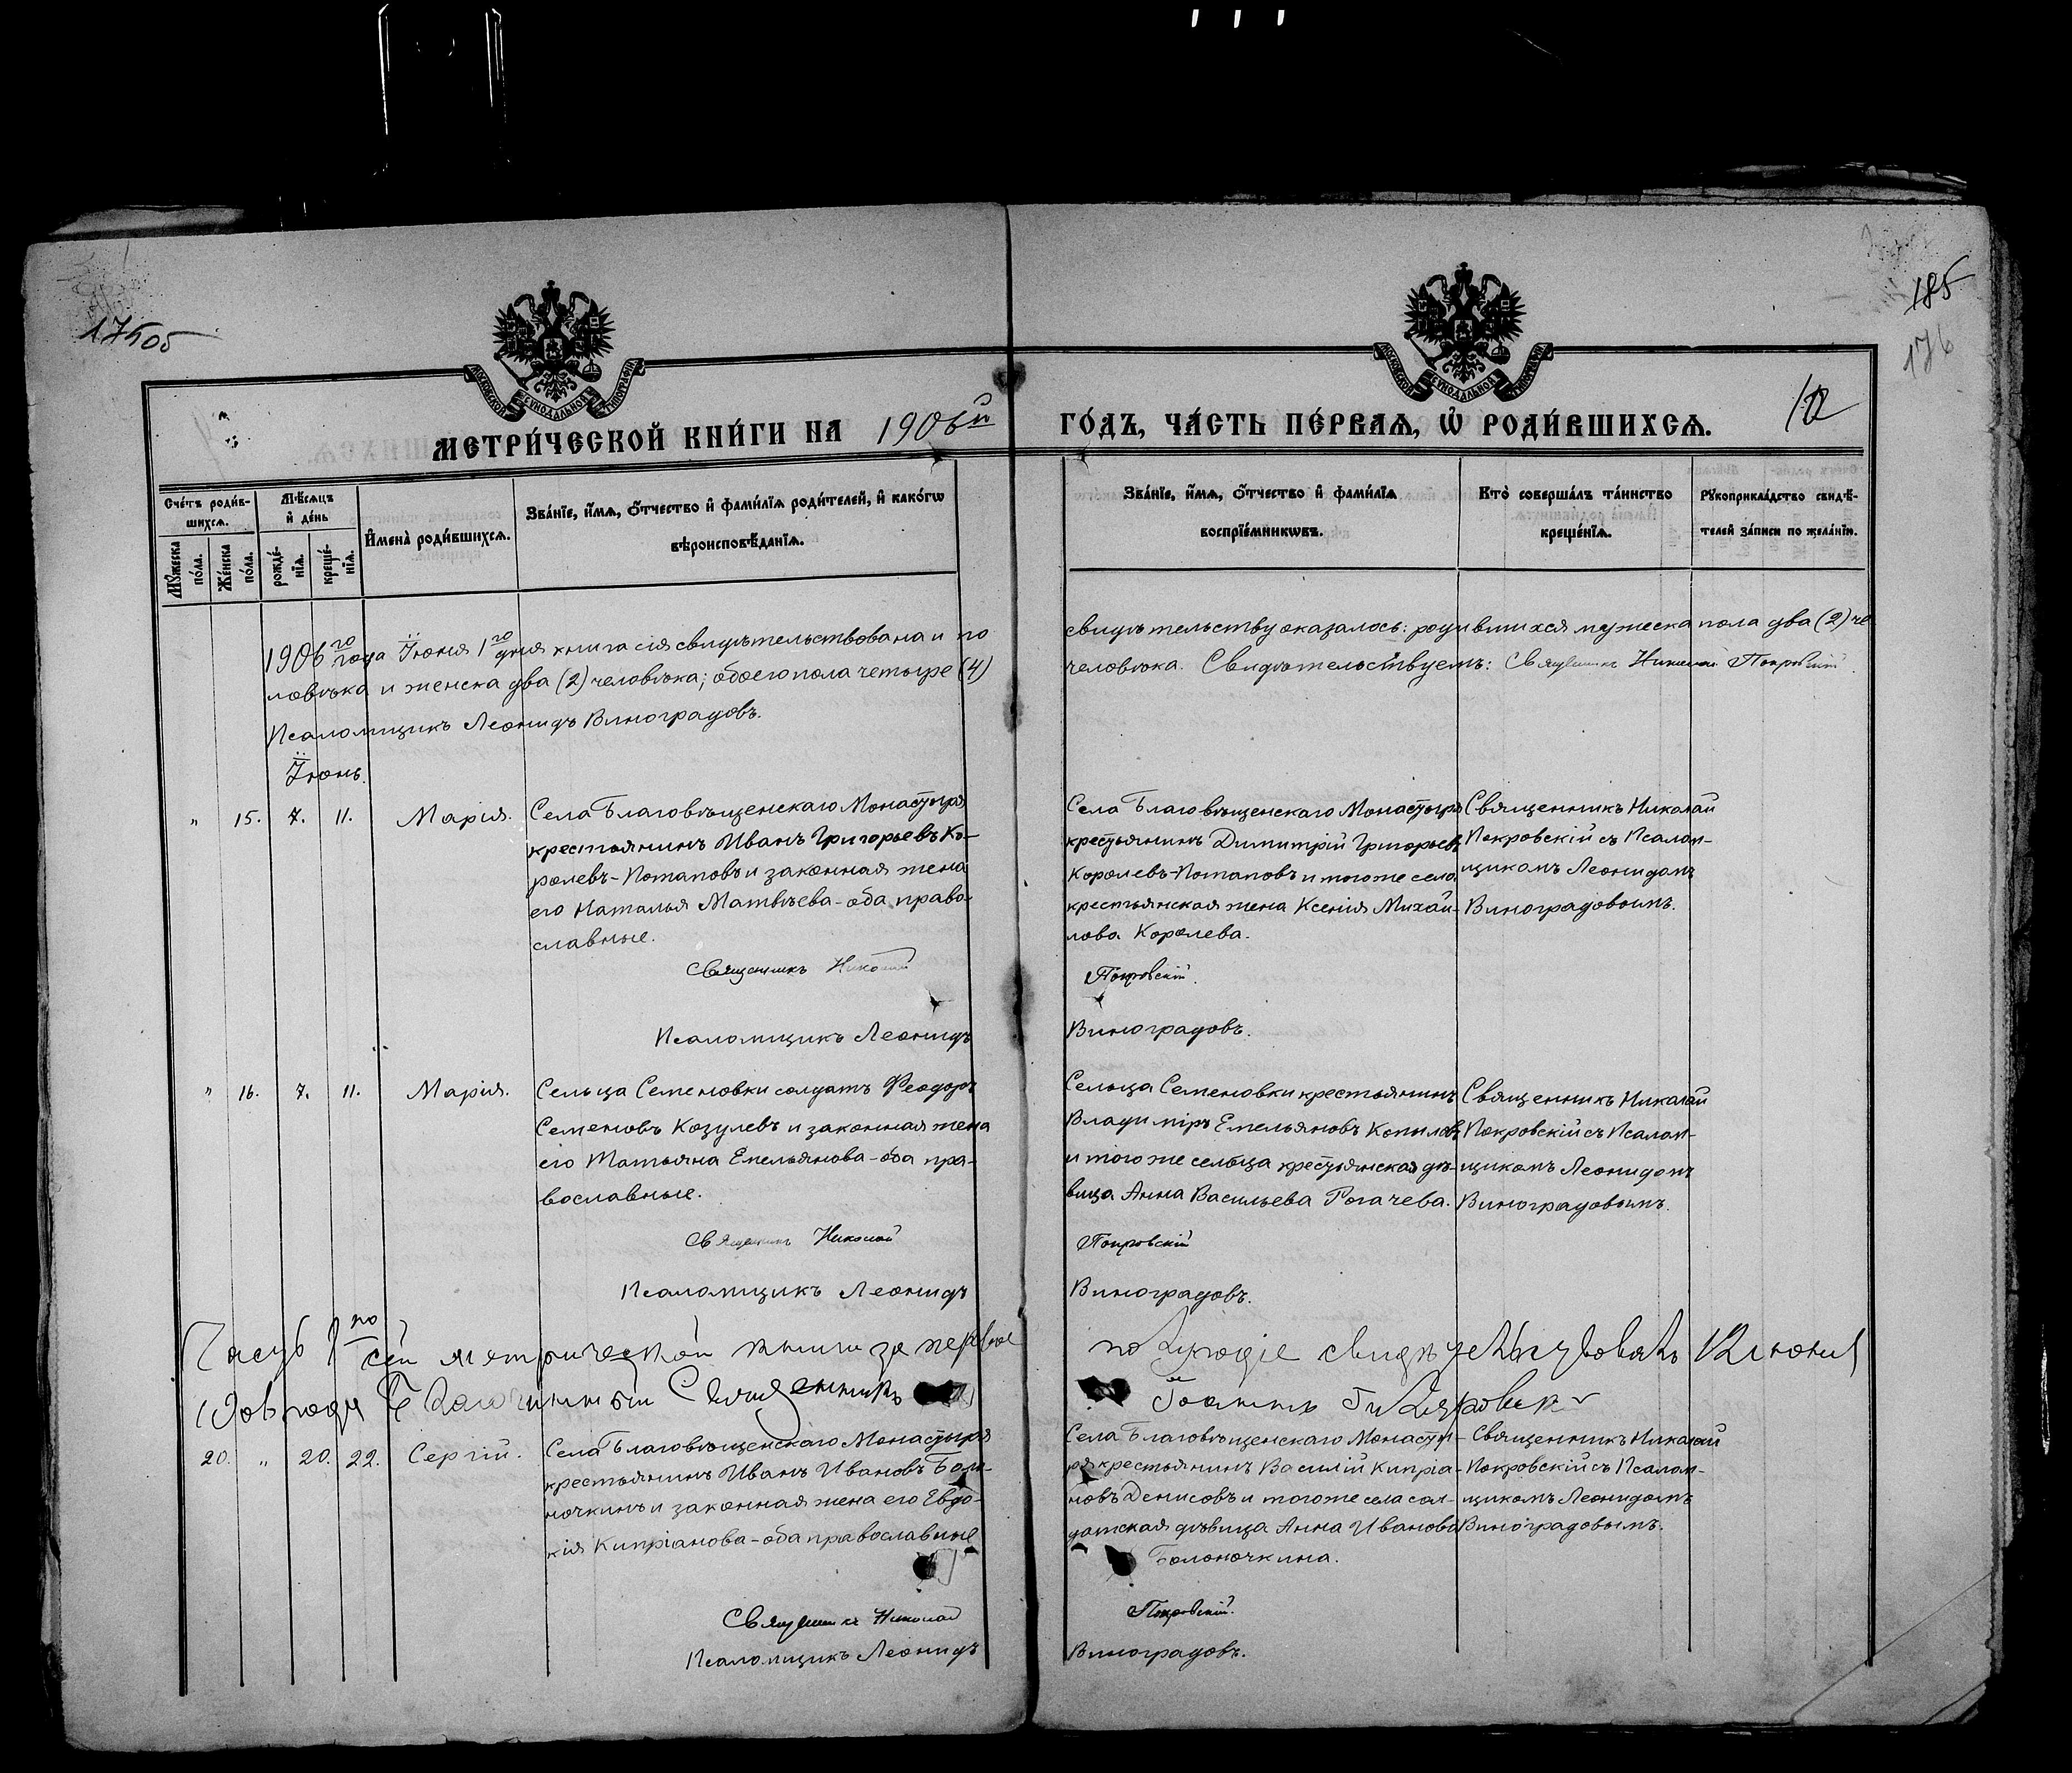 175об
185
176
МОСКОВСКОЙ СѴНОДАЛЬНОЙ ТИПОГРАФІИ
МОСКОВСКОЙ СѴНОДАЛЬНОЙ ТИПОГРАФІИ
МЕТРИ́ЧЕСКОЙ КНИ́ГИ НА 1906й
ГО́ДЪ, ЧА́СТЬ ПЕ́РВАѦ, Ѡ҆ РОДИ́ВШИХСѦ.
Сче́тъ роди́в-
шихсѧ.
Мѣ́сѧцъ
и҆ де́нь
Мꙋ́жеска по́ла.
Же́нска по́ла.
рожде́-
нїѧ.
креще́-
нїѧ.
И҆мена̀ роди́вшихсѧ.
Зва́нїе, и҆́мѧ, ѻ҆́тчество и҆ фами́лїѧ роди́телей, и҆ како́гѡ
вѣроисповѣ́данїѧ.
Зва́нїе, и҆́мѧ, ѻ҆́тчество и҆ фами́лїѧ
воспрїе́мникѡвъ.
Кто̀ соверша́лъ та́инство
креще́нїѧ.
Рꙋкоприкла́дство свидѣ́-
телей за́писи по жела́нїю.
1906го года Іюня 1го дня книга сія свидѣтельствована и по
свидѣтельству оказалось: родившихся мужеска пола два (2) че
ловѣка и женска два (2) человѣка; обоего пола четыре (4)
человѣка. Свидѣтельствуемъ: Священникъ Николай Покровскій.
Псаломщикъ Леонидъ Виноградовъ.
Іюнь.
" 15. 7. 11. Марія.
Села Благовѣщенскаго Монастыря
крестьянинъ Иванъ Григорьевъ Ко-
ролевъ-Потаповъ и законная жена
его Наталья Матвѣева - оба право-
славные.
Села Благовѣщенскаго Монастыря
крестьянинъ Димитрій Григорьевъ
Королевъ-Потаповъ и того же села
крестьянская жена Ксенія Михай-
лова Королева.
Священникъ Николай
Покровскій съ Псалом-
щикомъ Леонидомъ
Виноградовымъ.
Священникъ Николай Покровскій.
Псаломщикъ Леонидъ Виноградовъ.
" 16. 7. 11. Марія.
Сельца Семеновки солдатъ Феодоръ
Семеновъ Козулевъ и законная жена
его Татьяна Емельянова - оба пра-
вославные.
Сельца Семеновки крестьянинъ
Владиміръ Емельяновъ Копыловъ
и того же сельца крестьянская дѣ-
вица Анна Васильева Рогачева.
Священникъ Николай
Покровскій съ Псалом-
щикомъ Леонидомъ
Виноградовымъ.
Священникъ Николай Покровскій
Псаломщикъ Леонидъ Виноградовъ.
Часть 1ю сей метрической книги за первое полугодіе свидѣтельствовалъ 12 іюня
1906 года Благочинный Священникъ Іоаннъ
20. " 20. 22. Сергій.
Села Благовѣщенскаго Монастыря
крестьянинъ Иванъ Ивановъ Боло-
ночкинъ и законная жена его Евдо-
кія Кипріанова - оба православные
Села Благовѣщенскаго Монасты-
ря крестьянинъ Василій Кипріа-
новъ Денисовъ и того же села сол-
датская дѣвица Анна Иванова
Болоночкина.
Священникъ Николай
Покровскій съ Псалом-
щикомъ Леонидомъ
Виноградовымъ.
Священникъ Николай Покровскій.
Псаломщикъ Леонидъ Виноградовъ.